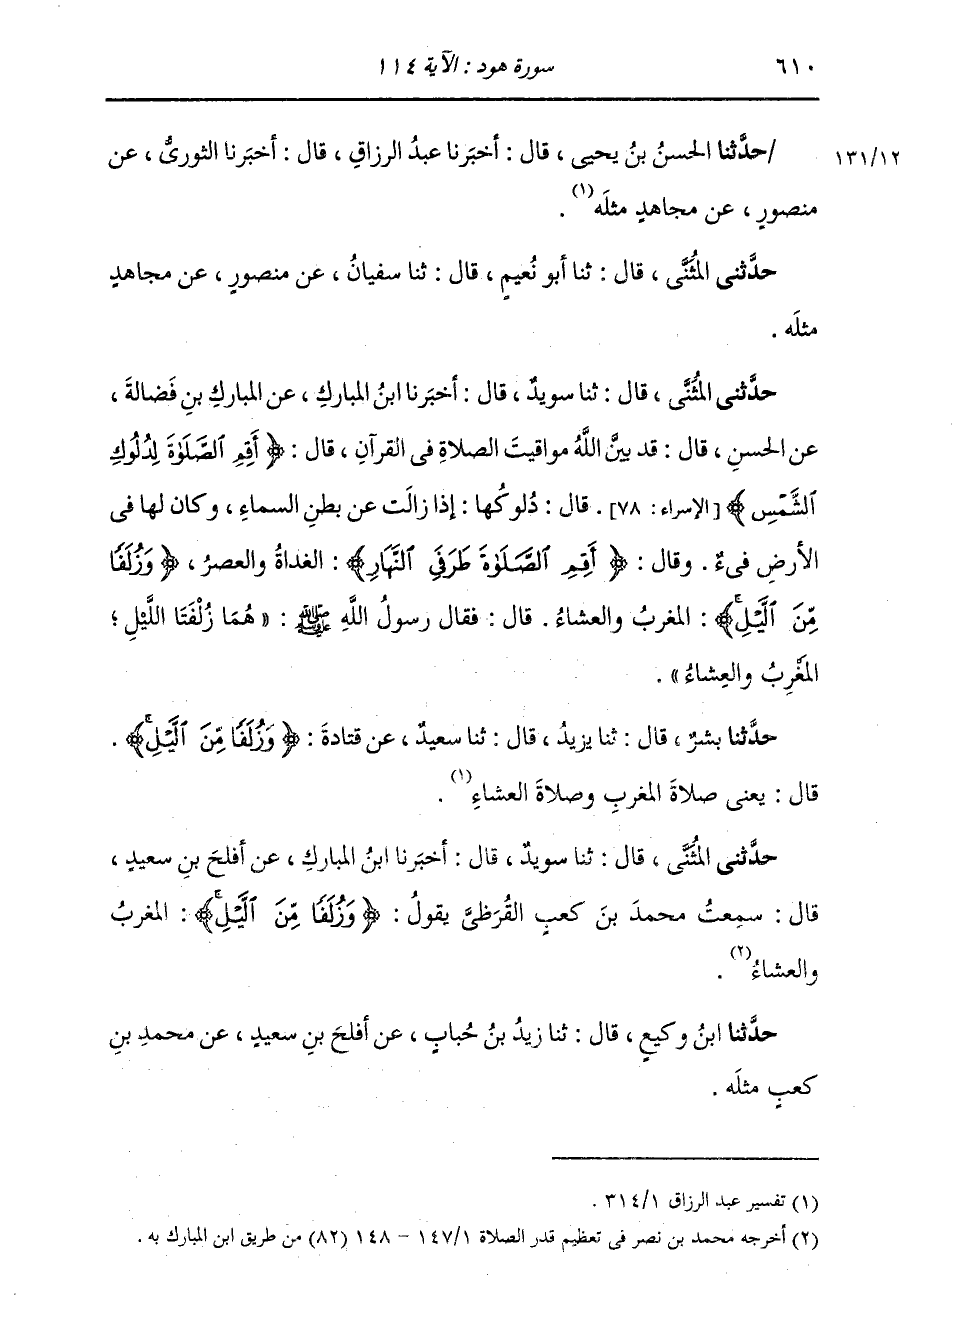 ٦١٠ سورة هود : الآية ١١٤
١٣١/١٢ /حدَّثنا الحسنُ بنُ يحيى ، قال : أخبَرنا عبدُ الرزاقِ ، قال : أخبَرنا الثورىُّ ، عن
منصورٍ ، عن مجاهدٍ مثلَه(١) .
حدَّثنى المُثَنَّى ، قال : ثنا أبو نُعيمٍ ، قال : ثنا سفيانُ ، عن منصورٍ ، عن مجاهدٍ
مثلَه .
حدَّثنى المُثَنَّى ، قال : ثنا سويدٌ ، قال : أخبَرنا ابنُ المباركِ ، عن المباركِ بنِ فَضالةَ ،
عن الحسنِ ، قال : قد بينَّ اللَّهُ مواقيتَ الصلاةِ فى القرآنِ ، قال : ﴿ أَقِمِ ٱلصَّلَوٰةَ لِدُلُوكِ
ٱلشَّمْسِ ﴾ [الإسراء : ٧٨] . قال : دُلوكُها : إذا زالَت عن بطنِ السماءِ ، وكان لها فى
الأرضِ فىءٌ . وقال : ﴿ أَقِمِ ٱلصَّلَوٰةَ طَرَفَيِ ٱلنَّهَارِ ﴾ : الغداةُ والعصرُ ، ﴿ وَزُلَفًا
مِّنَ ٱلَّيْلِۚ ﴾ : المغربُ والعشاءُ . قال : فقال رسولُ اللَّهِ ﷺ : « هُمَا زُلْفَتَا اللَّيْلِ ؛
المَغْرِبُ والعِشاءُ » .
حدَّثنا بشرٌ ، قال : ثنا يزيدُ ، قال : ثنا سعيدٌ ، عن قتادةَ : ﴿ وَزُلَفًا مِّنَ ٱلَّيْلِۚ ﴾ .
قال : يعنى صلاةَ المغربِ وصلاةَ العشاءِ(١) .
حدَّثنى المُثَنَّى ، قال : ثنا سويدٌ ، قال : أخبَرنا ابنُ المباركِ ، عن أفلحَ بنِ سعيدٍ ،
قال : سمِعتُ محمدَ بنَ كعبٍ القُرَظىَّ يقولُ : ﴿ وَزُلَفًا مِّنَ ٱلَّيْلِۚ ﴾ : المغربُ
والعشاءُ(٢) .
حدَّثنا ابنُ وكيعٍ ، قال : ثنا زيدُ بنُ حُبابٍ ، عن أفلحَ بنِ سعيدٍ ، عن محمدِ بنِ
كعبٍ مثلَه .
(١) تفسير عبد الرزاق ٣١٤/١ .
(٢) أخرجه محمد بن نصر فى تعظيم قدر الصلاة ١٤٧/١ – ١٤٨ (٨٢) من طريق ابن المبارك به .